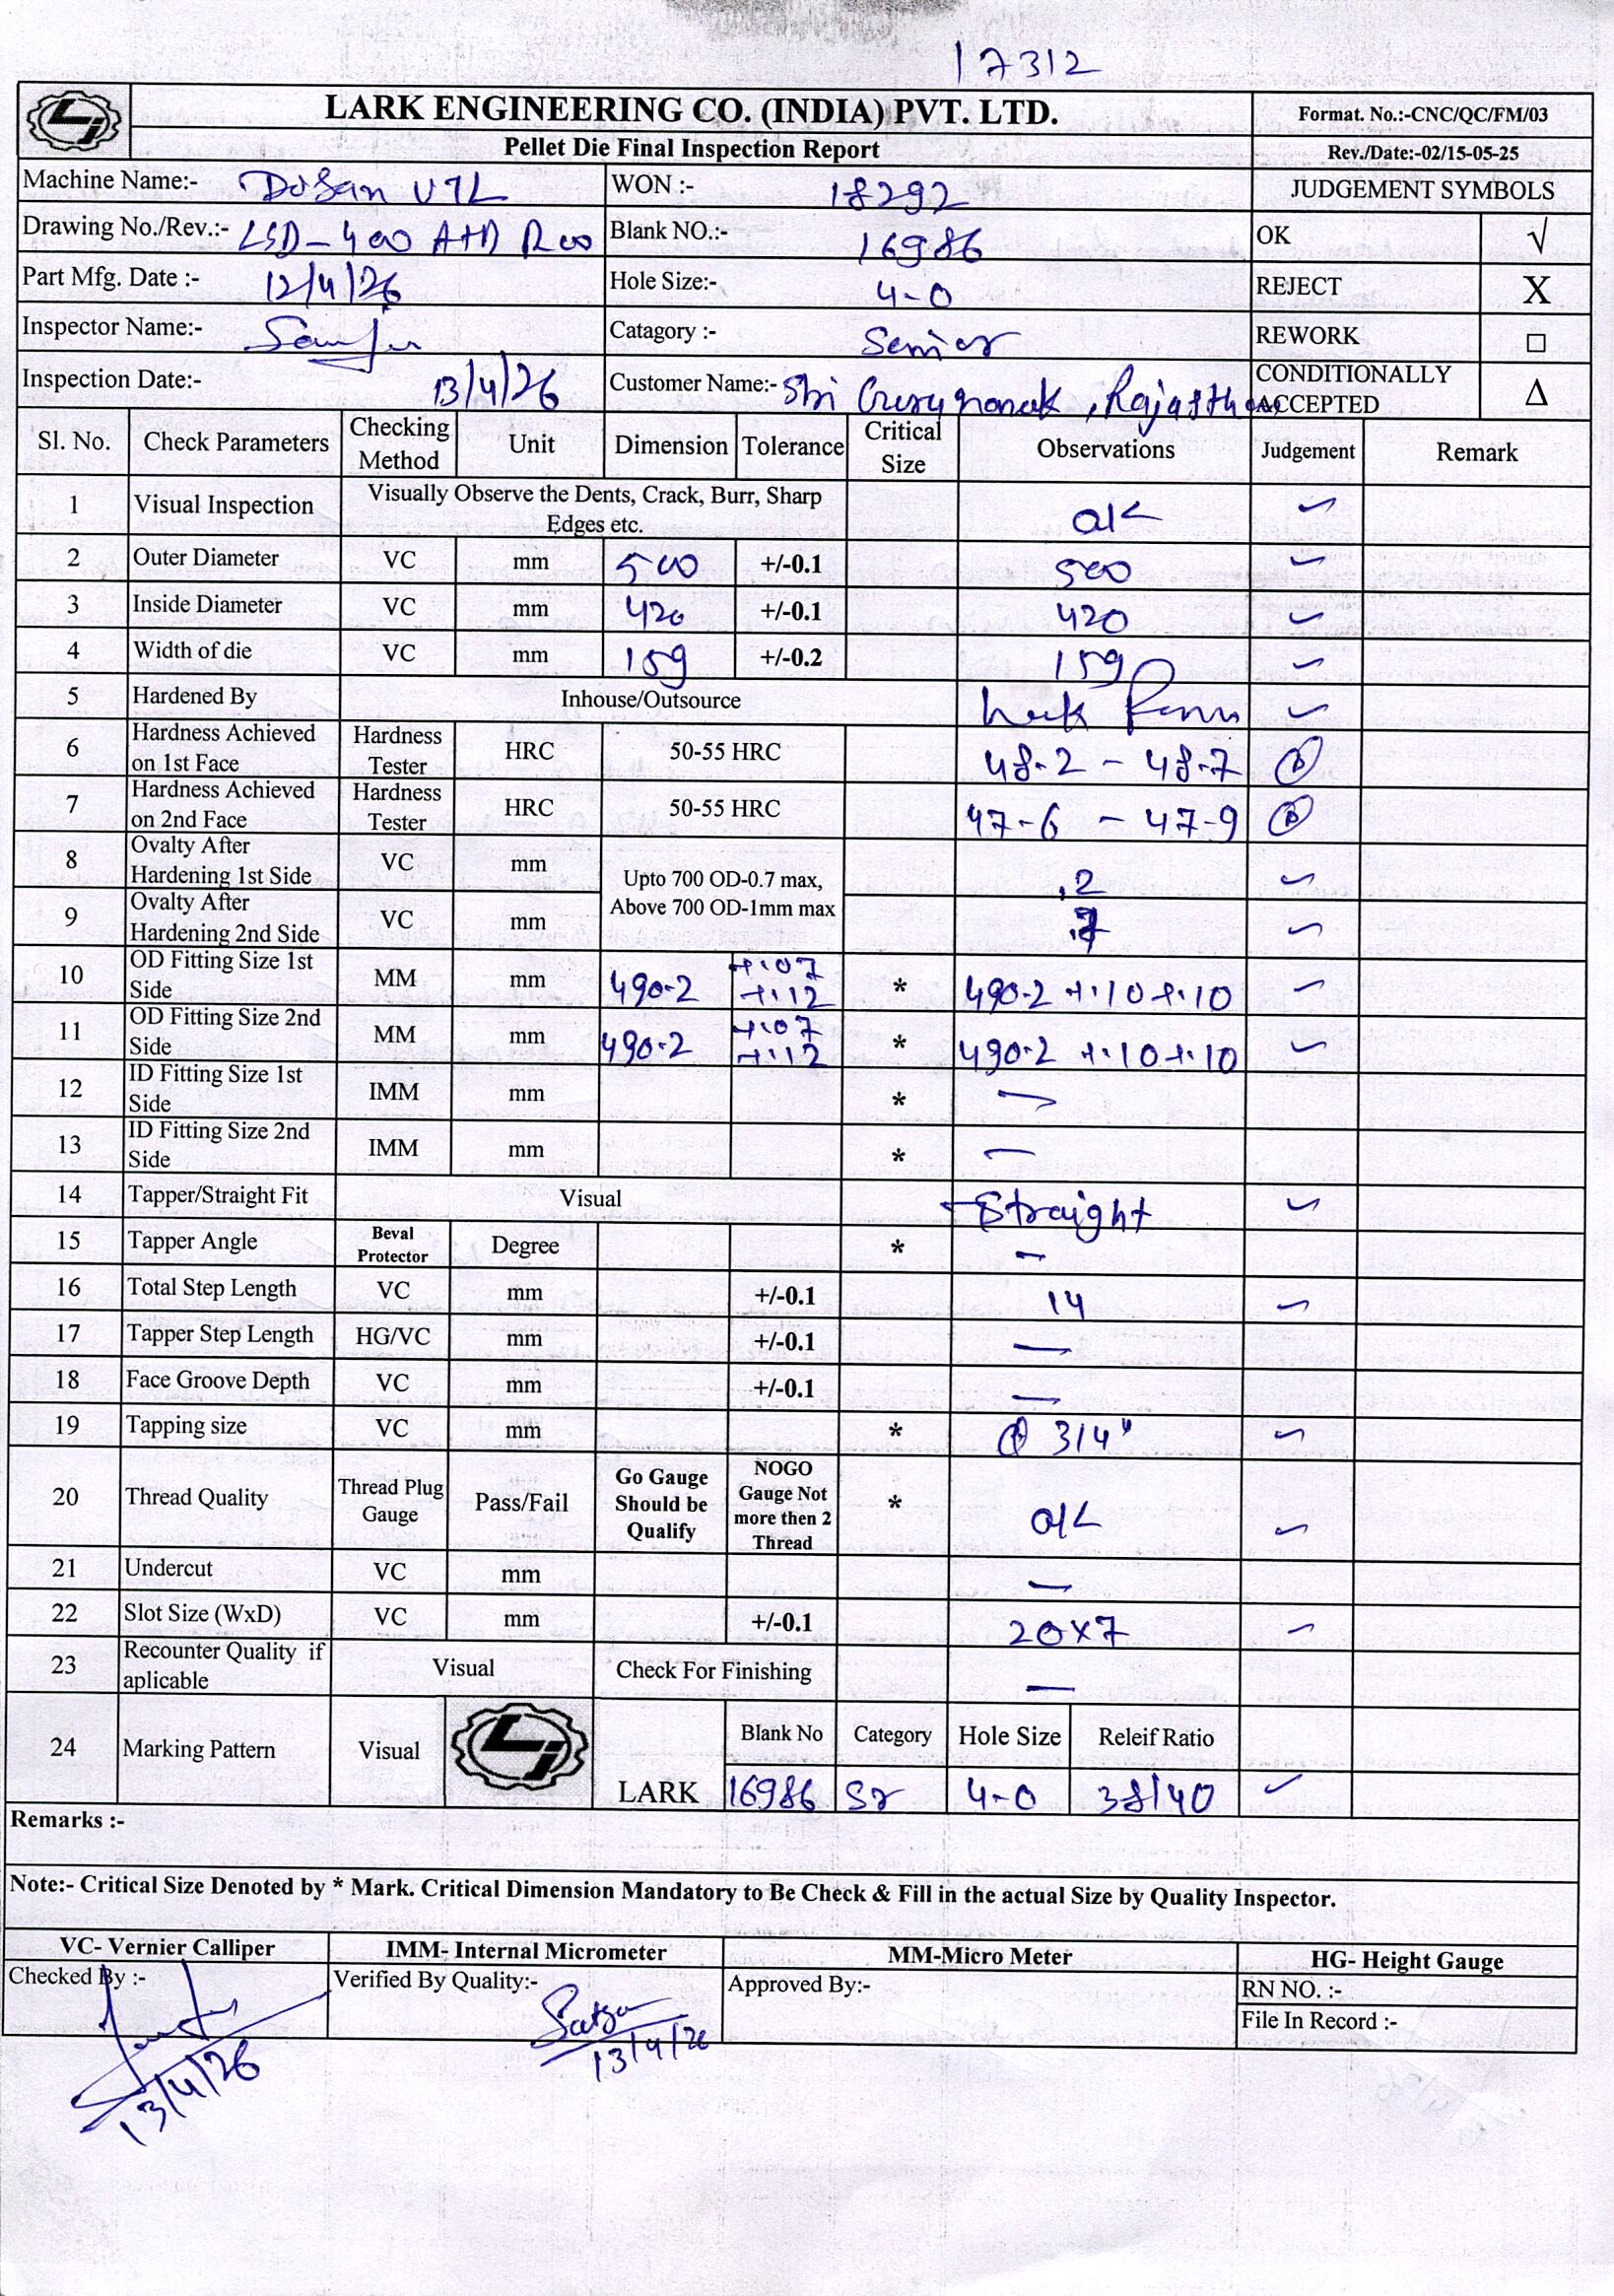 17312
LARK ENGINEERING CO. (INDIA) PVT. LTD.
Format. No.:-CNC/QC/FM/03
Pellet Die Final Inspection Report
Rev./Date:-02/15-05-25
Machine Name:- Dosan VTL WON :- 18292 JUDGEMENT SYMBOLS
Drawing No./Rev.:- LSD-400 A+D R00 Blank NO.:- 16986 OK √
Part Mfg. Date :- 12/4/26 Hole Size:- 4-0 REJECT X
Inspector Name:- Catagory :- Senior REWORK □
Inspection Date:- 13/4/26 Customer Name:- Shri Gurunanak, Rajasthan CONDITIONALLY ACCEPTED Δ
Sl. No. Check Parameters Checking Method Unit Dimension Tolerance Critical Size Observations Judgement Remark
1 Visual Inspection Visually Observe the Dents, Crack, Burr, Sharp Edges etc. ok ✓
2 Outer Diameter VC mm 500 +/-0.1 500 ✓
3 Inside Diameter VC mm 420 +/-0.1 420 ✓
4 Width of die VC mm 159 +/-0.2 159 ✓
5 Hardened By Inhouse/Outsource ✓
6 Hardness Achieved on 1st Face Hardness Tester HRC 50-55 HRC 48.2 - 48.7
7 Hardness Achieved on 2nd Face Hardness Tester HRC 50-55 HRC 47-6 - 47-9
8 Ovalty After Hardening 1st Side VC mm Upto 700 OD-0.7 max, Above 700 OD-1mm max .2 ✓
9 Ovalty After Hardening 2nd Side VC mm ✓
10 OD Fitting Size 1st Side MM mm 490.2 +.07 +.12 * 490.2 +.10 +.10 ✓
11 OD Fitting Size 2nd Side MM mm 490.2 +.07 +.12 * 490.2 +.10 +.10 ✓
12 ID Fitting Size 1st Side IMM mm * —
13 ID Fitting Size 2nd Side IMM mm * —
14 Tapper/Straight Fit Visual Straight ✓
15 Tapper Angle Beval Protector Degree * —
16 Total Step Length VC mm +/-0.1 14 ✓
17 Tapper Step Length HG/VC mm +/-0.1 —
18 Face Groove Depth VC mm +/-0.1 —
19 Tapping size VC mm * 3/4" ✓
20 Thread Quality Thread Plug Gauge Pass/Fail Go Gauge Should be Qualify NOGO Gauge Not more then 2 Thread * ok ✓
21 Undercut VC mm —
22 Slot Size (WxD) VC mm +/-0.1 20x7 ✓
23 Recounter Quality if aplicable Visual Check For Finishing —
24 Marking Pattern Visual LARK Blank No Category Hole Size Releif Ratio
16986 Sr 4-0 38/40 ✓
Remarks :-
Note:- Critical Size Denoted by * Mark. Critical Dimension Mandatory to Be Check & Fill in the actual Size by Quality Inspector.
VC- Vernier Calliper IMM- Internal Micrometer MM-Micro Meter HG- Height Gauge
Checked By :- Verified By Quality:- Approved By:- RN NO. :-
File In Record :-
13/4/26 13/4/26